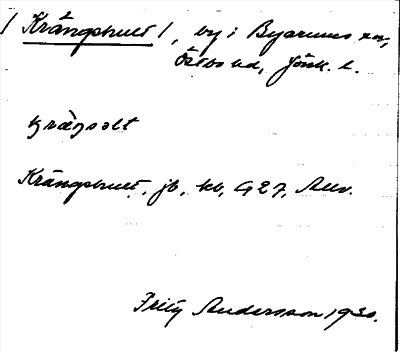 / Krångshult /, by i Byarums sn,
Östbo hd, Jönk. l.
kråŋsəlt
Krångshult, jb, kb, G27, Auv.
Fritz Andersson 1930.